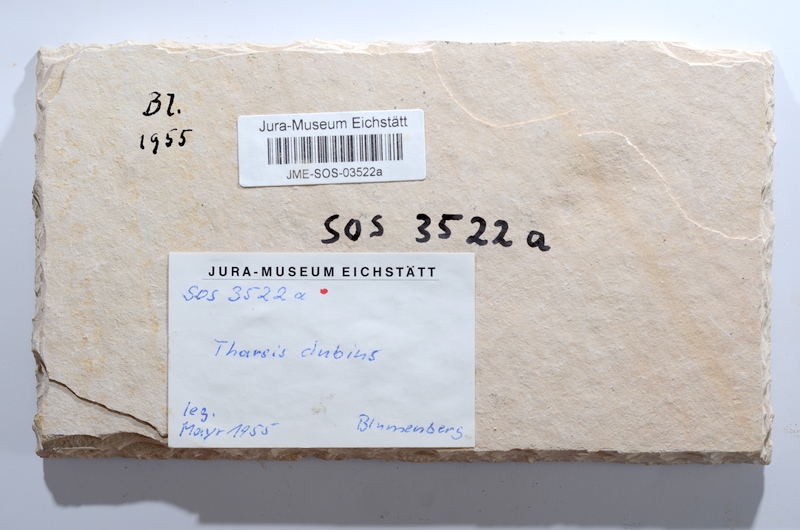 Bl.
1955
Jura-Museum Eichstätt
JME-SOS-03522a
SOS 3522 a
JURA-MUSEUM EICHSTÄTT
SOS 3522 a
Tharsis dubius
leg.
Mayr 1955 Blumenberg